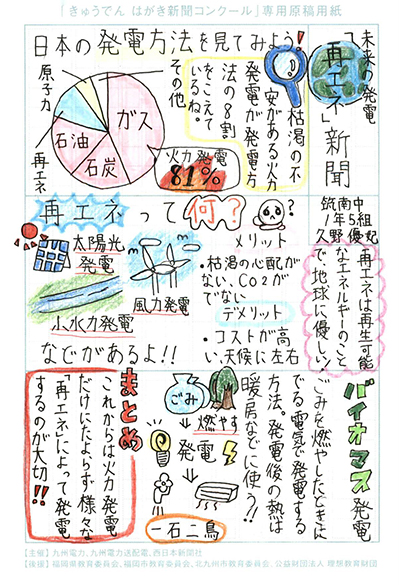 「きゅうでん はがき新聞コンクール」専用原稿用紙
未来の発電
「再エネ」新聞
筑南中
1年5組
久野 優妃
再エネは再生可能
なエネルギーのこと
で、地球に優しい!
日本の発電方法を見てみよう!
枯渇の不
安がある火力
発電が発電方
法の8割
をこえて
いるね。
その他
原子力
再エネ
石油
石炭
ガス
火力発電
81%
再エネって何?
?
太陽光
発電
風力発電
小水力発電
などがあるよ!!
メリット
・枯渇の心配が
ない、CO2が
でない
デメリット
・コストが高
い、天候に左右
バイオマス発電
ごみを燃やしたときに
でる電気で発電する
方法。発電後の熱は
暖房などに使う!!
ごみ
燃やす
発電
一石二鳥
まとめ
これからは火力発電
だけにたよらず様々な
「再エネ」によって発電
するのが大切!!
【主催】九州電力、九州電力送配電、西日本新聞社
【後援】福岡県教育委員会、福岡市教育委員会、北九州市教育委員会、公益財団法人 理想教育財団